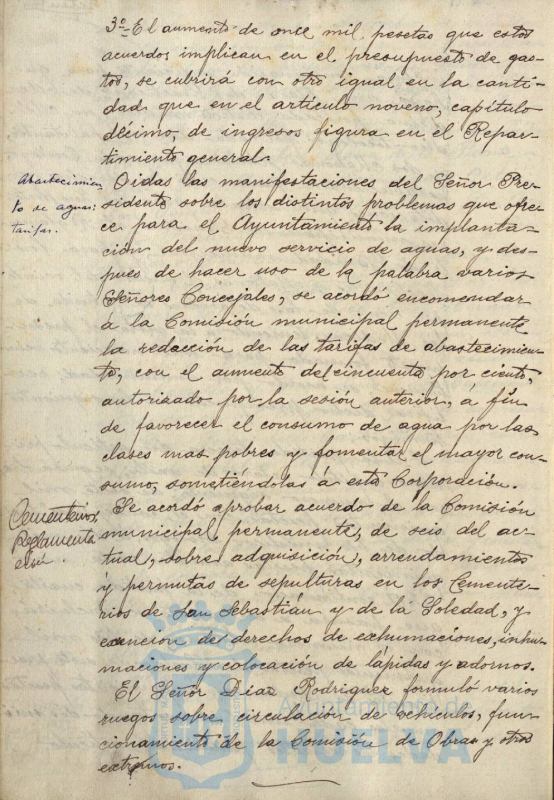 3º- El aumento de once mil pesetas que estos
acuerdos implican en el presupuesto de gas-
tos, se cubrirá con otro igual en la canti-
dad que en el artículo noveno, capítulo
décimo, de ingresos figura en el Repar-
timiento general.
Abastecimien
to de aguas:
tarifas.
Oidas las manifestaciones del Señor Pre-
sidente sobre los distintos problemas que ofre-
ce para el Ayuntamiento la implanta-
ción del nuevo servicio de aguas, y des-
pues de hacer uso de la palabra varios
Señores Concejales, se acordó encomendar
á la Comisión municipal permanente
la redacción de las tarifas de abastecimien-
to, con el aumento del cincuenta por ciento,
autorizado por la sesión anterior, á fin
de favorecer el consumo de agua por las
clases mas pobres y fomentar el mayor con-
sumo, sometiéndolas á esta Corporación.
Cementerios,
Reglamenta
ción.
Se acordó aprobar acuerdo de la Comisión
municipal permanente, de seis del ac-
tual, sobre adquisición, arrendamientos
y permutas de sepulturas en los Cemente-
rios de San Sebastián y de la Soledad, y
exención de derechos de exhumaciones, inhu-
maciones y colocación de lápidas y adornos.
El Señor Diaz Rodriguez formuló varios
ruegos sobre circulación de vehículos, fun-
cionamiento de la Comisión de Obras y otros
extremos.
Ayuntamiento de
HUELVA